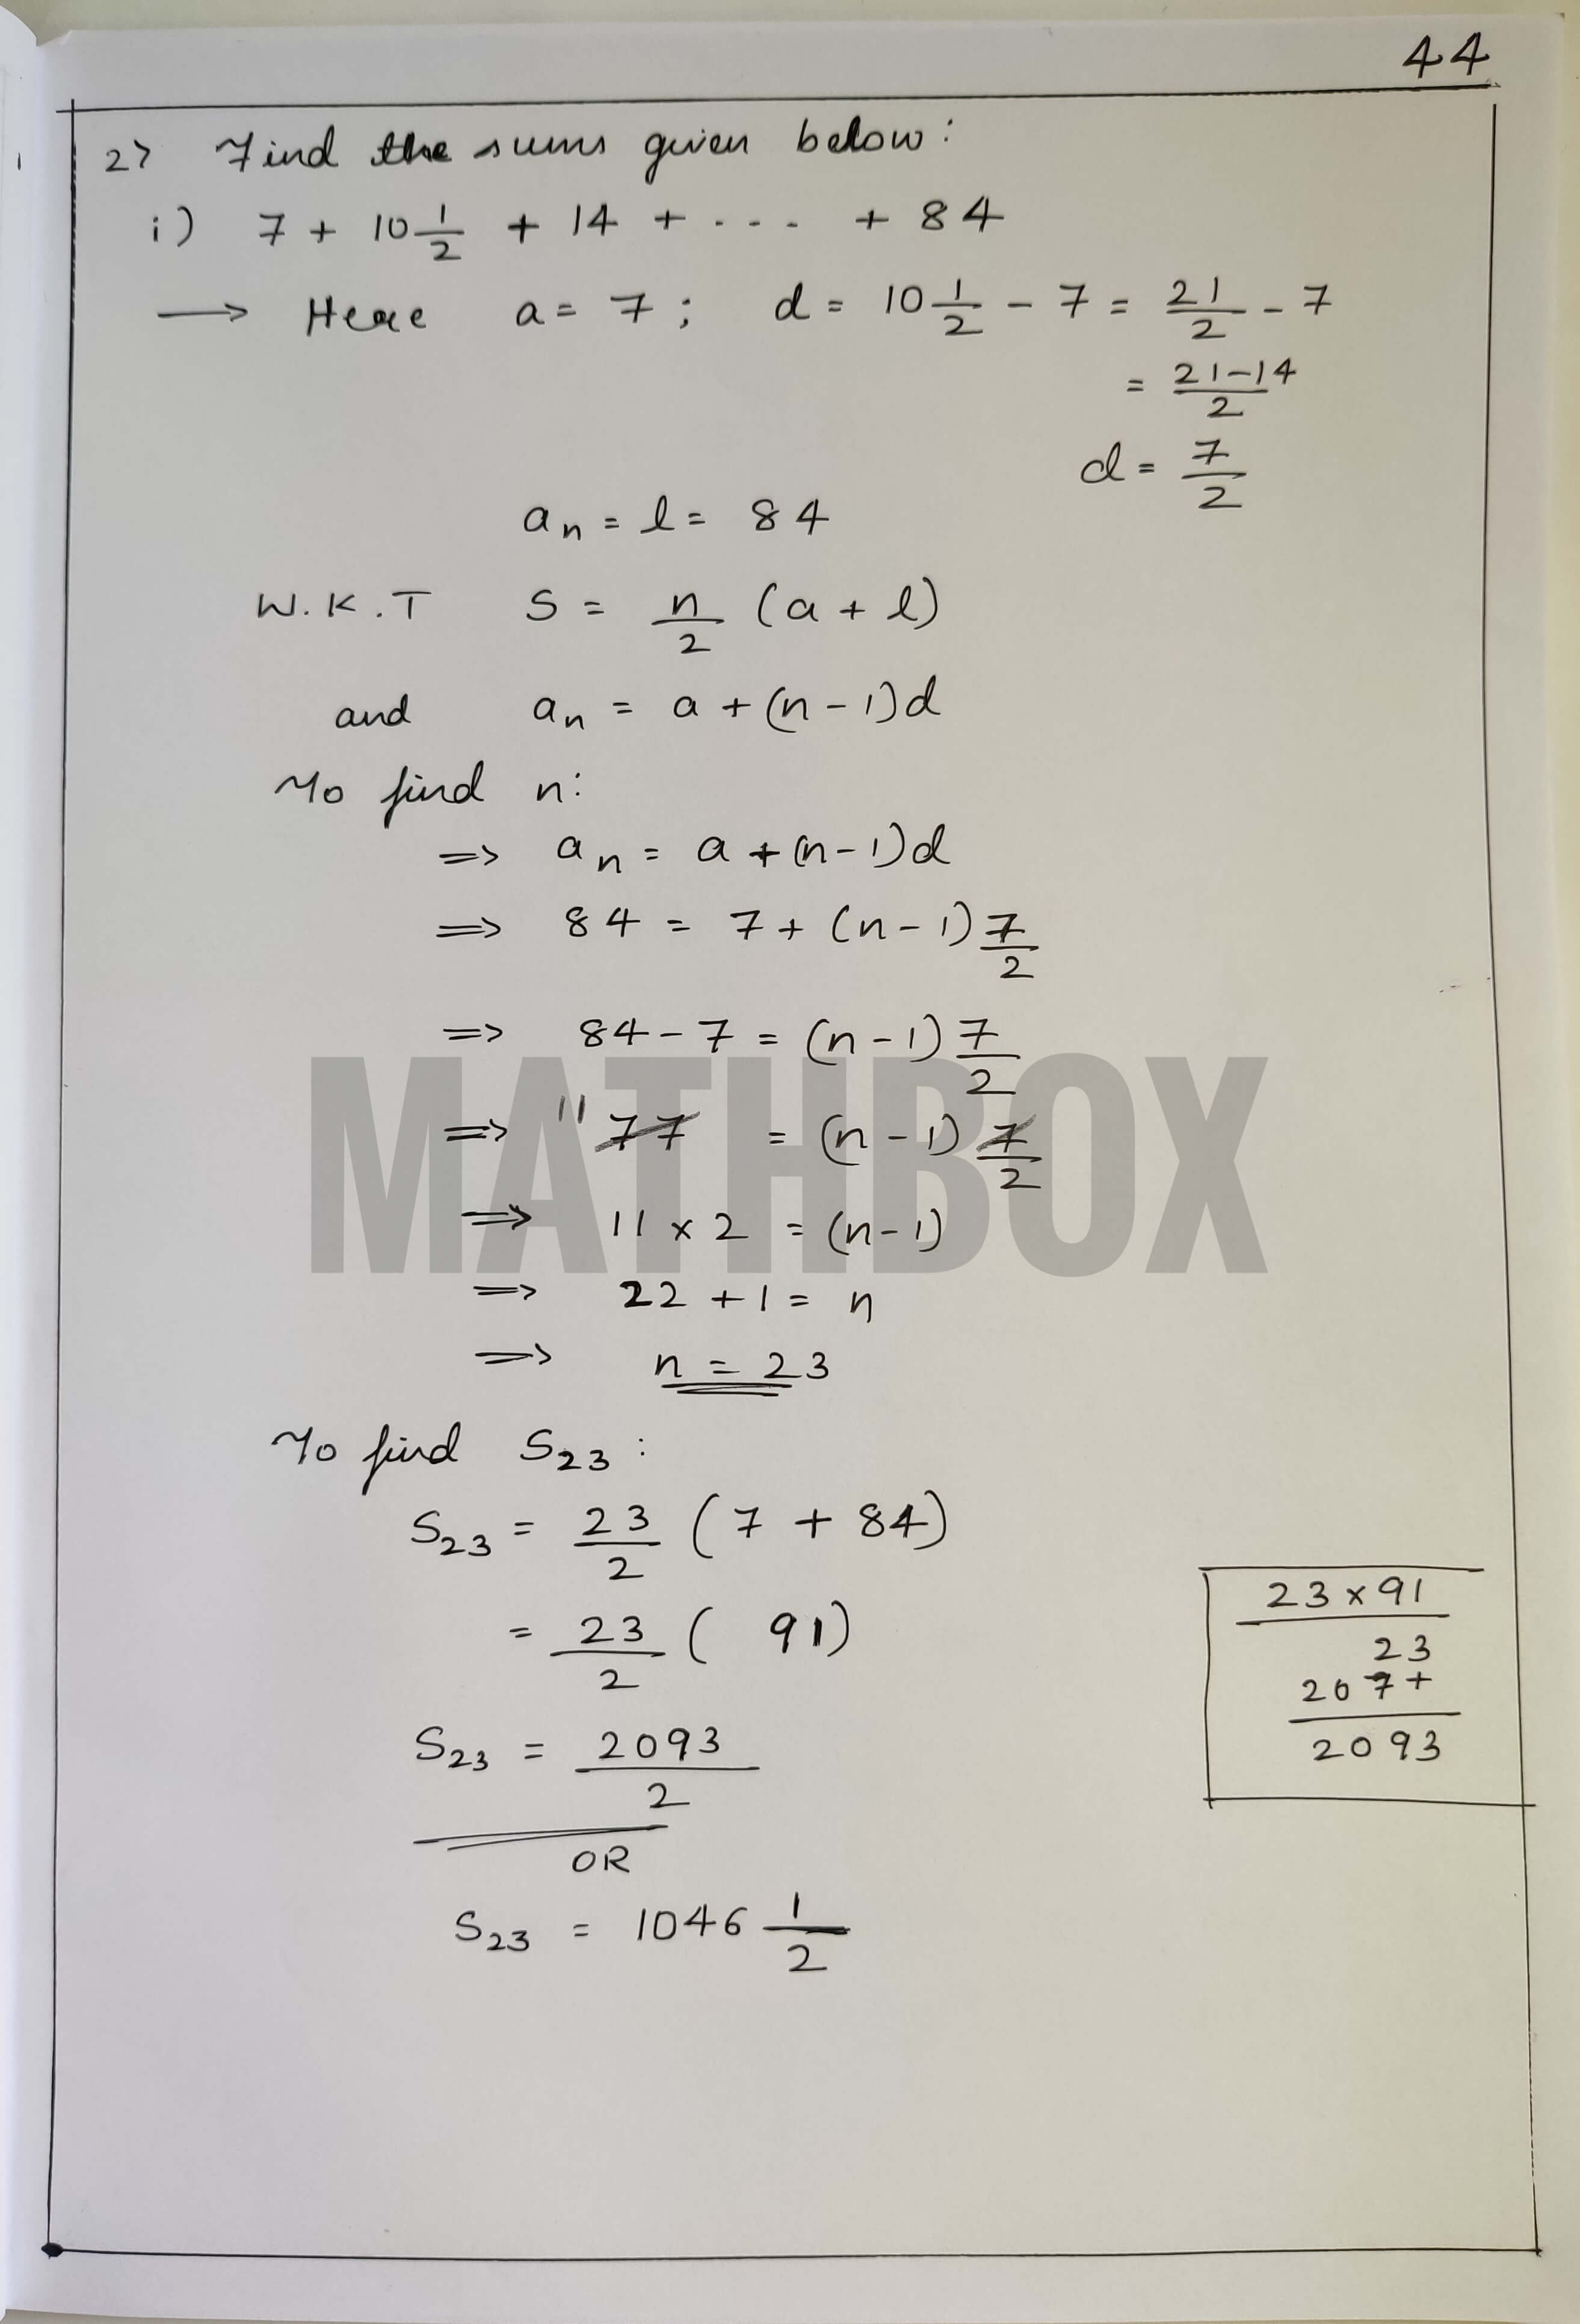 44
2> Find the sums given below:
i) 7 + 10 1/2 + 14 + - - - + 84
→ Here a = 7 ; d = 10 1/2 - 7 = 21/2 - 7
= 21-14/2
d = 7/2
an = l = 84
W.K.T S = n/2 (a + l)
and an = a + (n - 1)d
To find n:
=> an = a + (n-1)d
=> 84 = 7 + (n-1) 7/2
=> 84 - 7 = (n-1) 7/2
=> 11 77 = (n-1) 7/2
=> 11 x 2 = (n-1)
=> 22 + 1 = n
=> n = 23
To find S23 :
S23 = 23/2 (7 + 84)
= 23/2 ( 91)
S23 = 2093/2
OR
S23 = 1046 1/2
23 x 91
23
207+
2093
MATHBOX